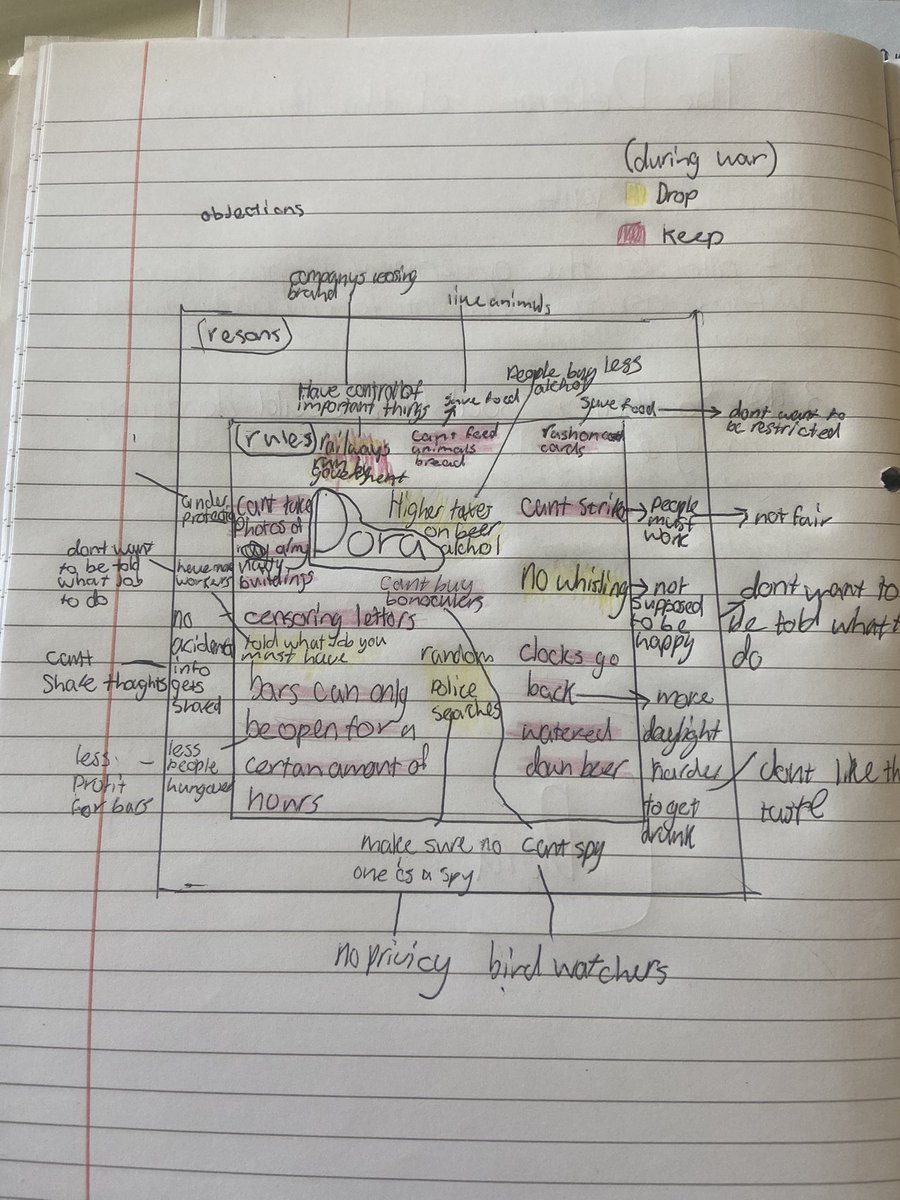 (during war)
Drop
Keep
objections
companys loosing
brand
like animals
(resons)
People buy Less
alchol
Have control of
important things
save food
save food
dont want to
be restricted
(rules)
railways
run by
government
cant feed
animals
bread
rashon
cards
under
cant take
photos of
army
buildings
Higher taxes
on beer
alchol
Cant strike
People
must
work
not fair
Dora
dont want
to be told
what job
to do
have more
workers
cant buy
bonoculers
No whisling
not
supposed
to be
happy
dont want to
be told what t
do
no
acidental
info
gets
shared
censoring letters
told what Job you
must have
cant
Share thoughts
random
Police
searches
clocks go
back
more
daylight
bars can only
be open for a
certan amont of
hours
less
people
hungover
less
Profit
for bars
watered
down beer
harder
to get
drunk
dont like th
taste
make sure no
one is a spy
cant spy
no privicy
bird watchers